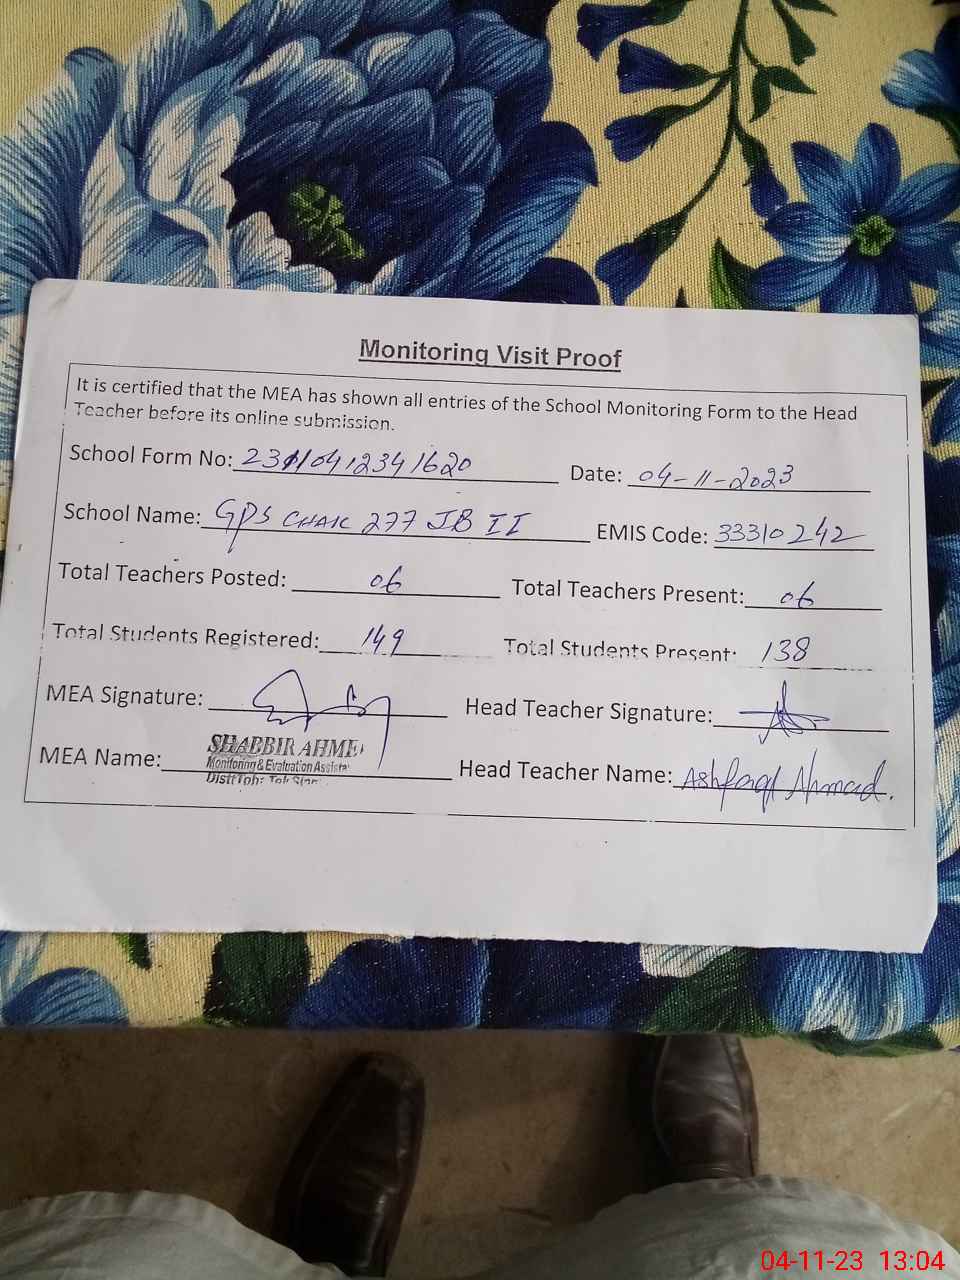 Monitoring Visit Proof
It is certified that the MEA has shown all entries of the School Monitoring Form to the Head
Teacher before its online submission.
School Form No: 2311041234 1620 Date: 04-11-2023
School Name: GPS CHAK 277 JB II EMIS Code: 33310242
Total Teachers Posted: 06 Total Teachers Present: 06
Total Students Registered: 149 Total Students Present: 138
MEA Signature: Head Teacher Signature:
MEA Name: SHABBIR AHME Head Teacher Name: Ashfaq Ahmad.
Monitoring & Evaluation Assista
04-11-23 13:04